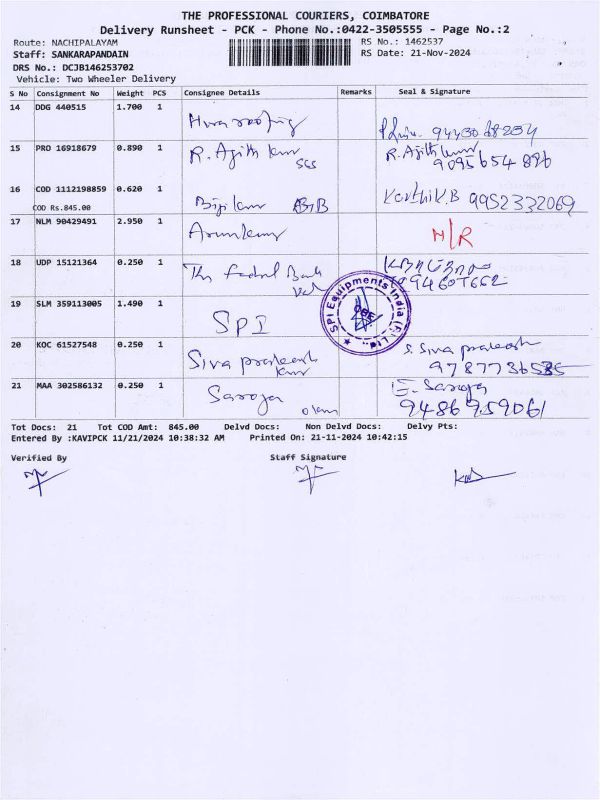 THE PROFESSIONAL COURIERS, COIMBATORE
Delivery Runsheet - PCK - Phone No.:0422-3505555 - Page No.:2
Route: NACHIPALAYAM RS No.: 1462537
Staff: SANKARAPANDAIN RS Date: 21-Nov-2024
DRS No.: DCJB146253702
Vehicle: Two Wheeler Delivery
S No Consignment No Weight PCS Consignee Details Remarks Seal & Signature
14 DDG 440515 1.700 1
15 PRO 16918679 0.890 1 R. Ajith kumr R. Ajith kumr
16 COD 1112198859 0.620 1 Karthik.B 9952332069
COD Rs.845.00
17 NLM 90429491 2.950 1 N/R
18 UDP 15121364 0.250 1
19 SLM 359113005 1.490 1 SPI SPI Equipments India (P) Ltd.,
20 KOC 61527548 0.250 1 Siva prakash S. Siva prakash
21 MAA 302586132 0.250 1 Saroja E. Saroja
9486959061
Tot Docs: 21 Tot COD Amt: 845.00 Delvd Docs: Non Delvd Docs: Delvy Pts:
Entered By :KAVIPCK 11/21/2024 10:38:32 AM Printed On: 21-11-2024 10:42:15
Verified By Staff Signature